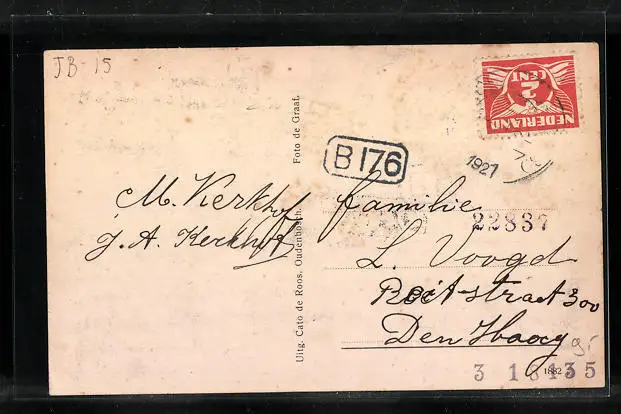 JB-15
NEDERLAND
2
CENT
1927
B 176
M. Kerkhof
J. A. Kerkhof
Foto de Graaf.
Uitg. Cato de Roos, Oudenbosch.
familie
22837
L. Voogd
straat 300
Den Haag
1882
3 18135